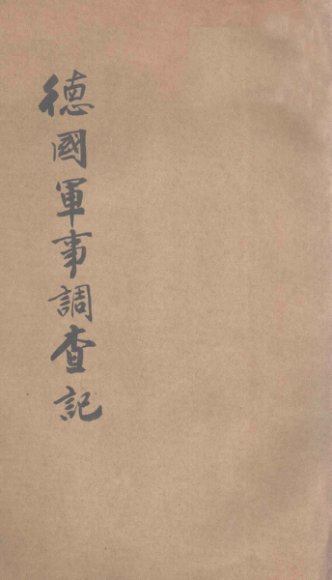 德國軍事調查記